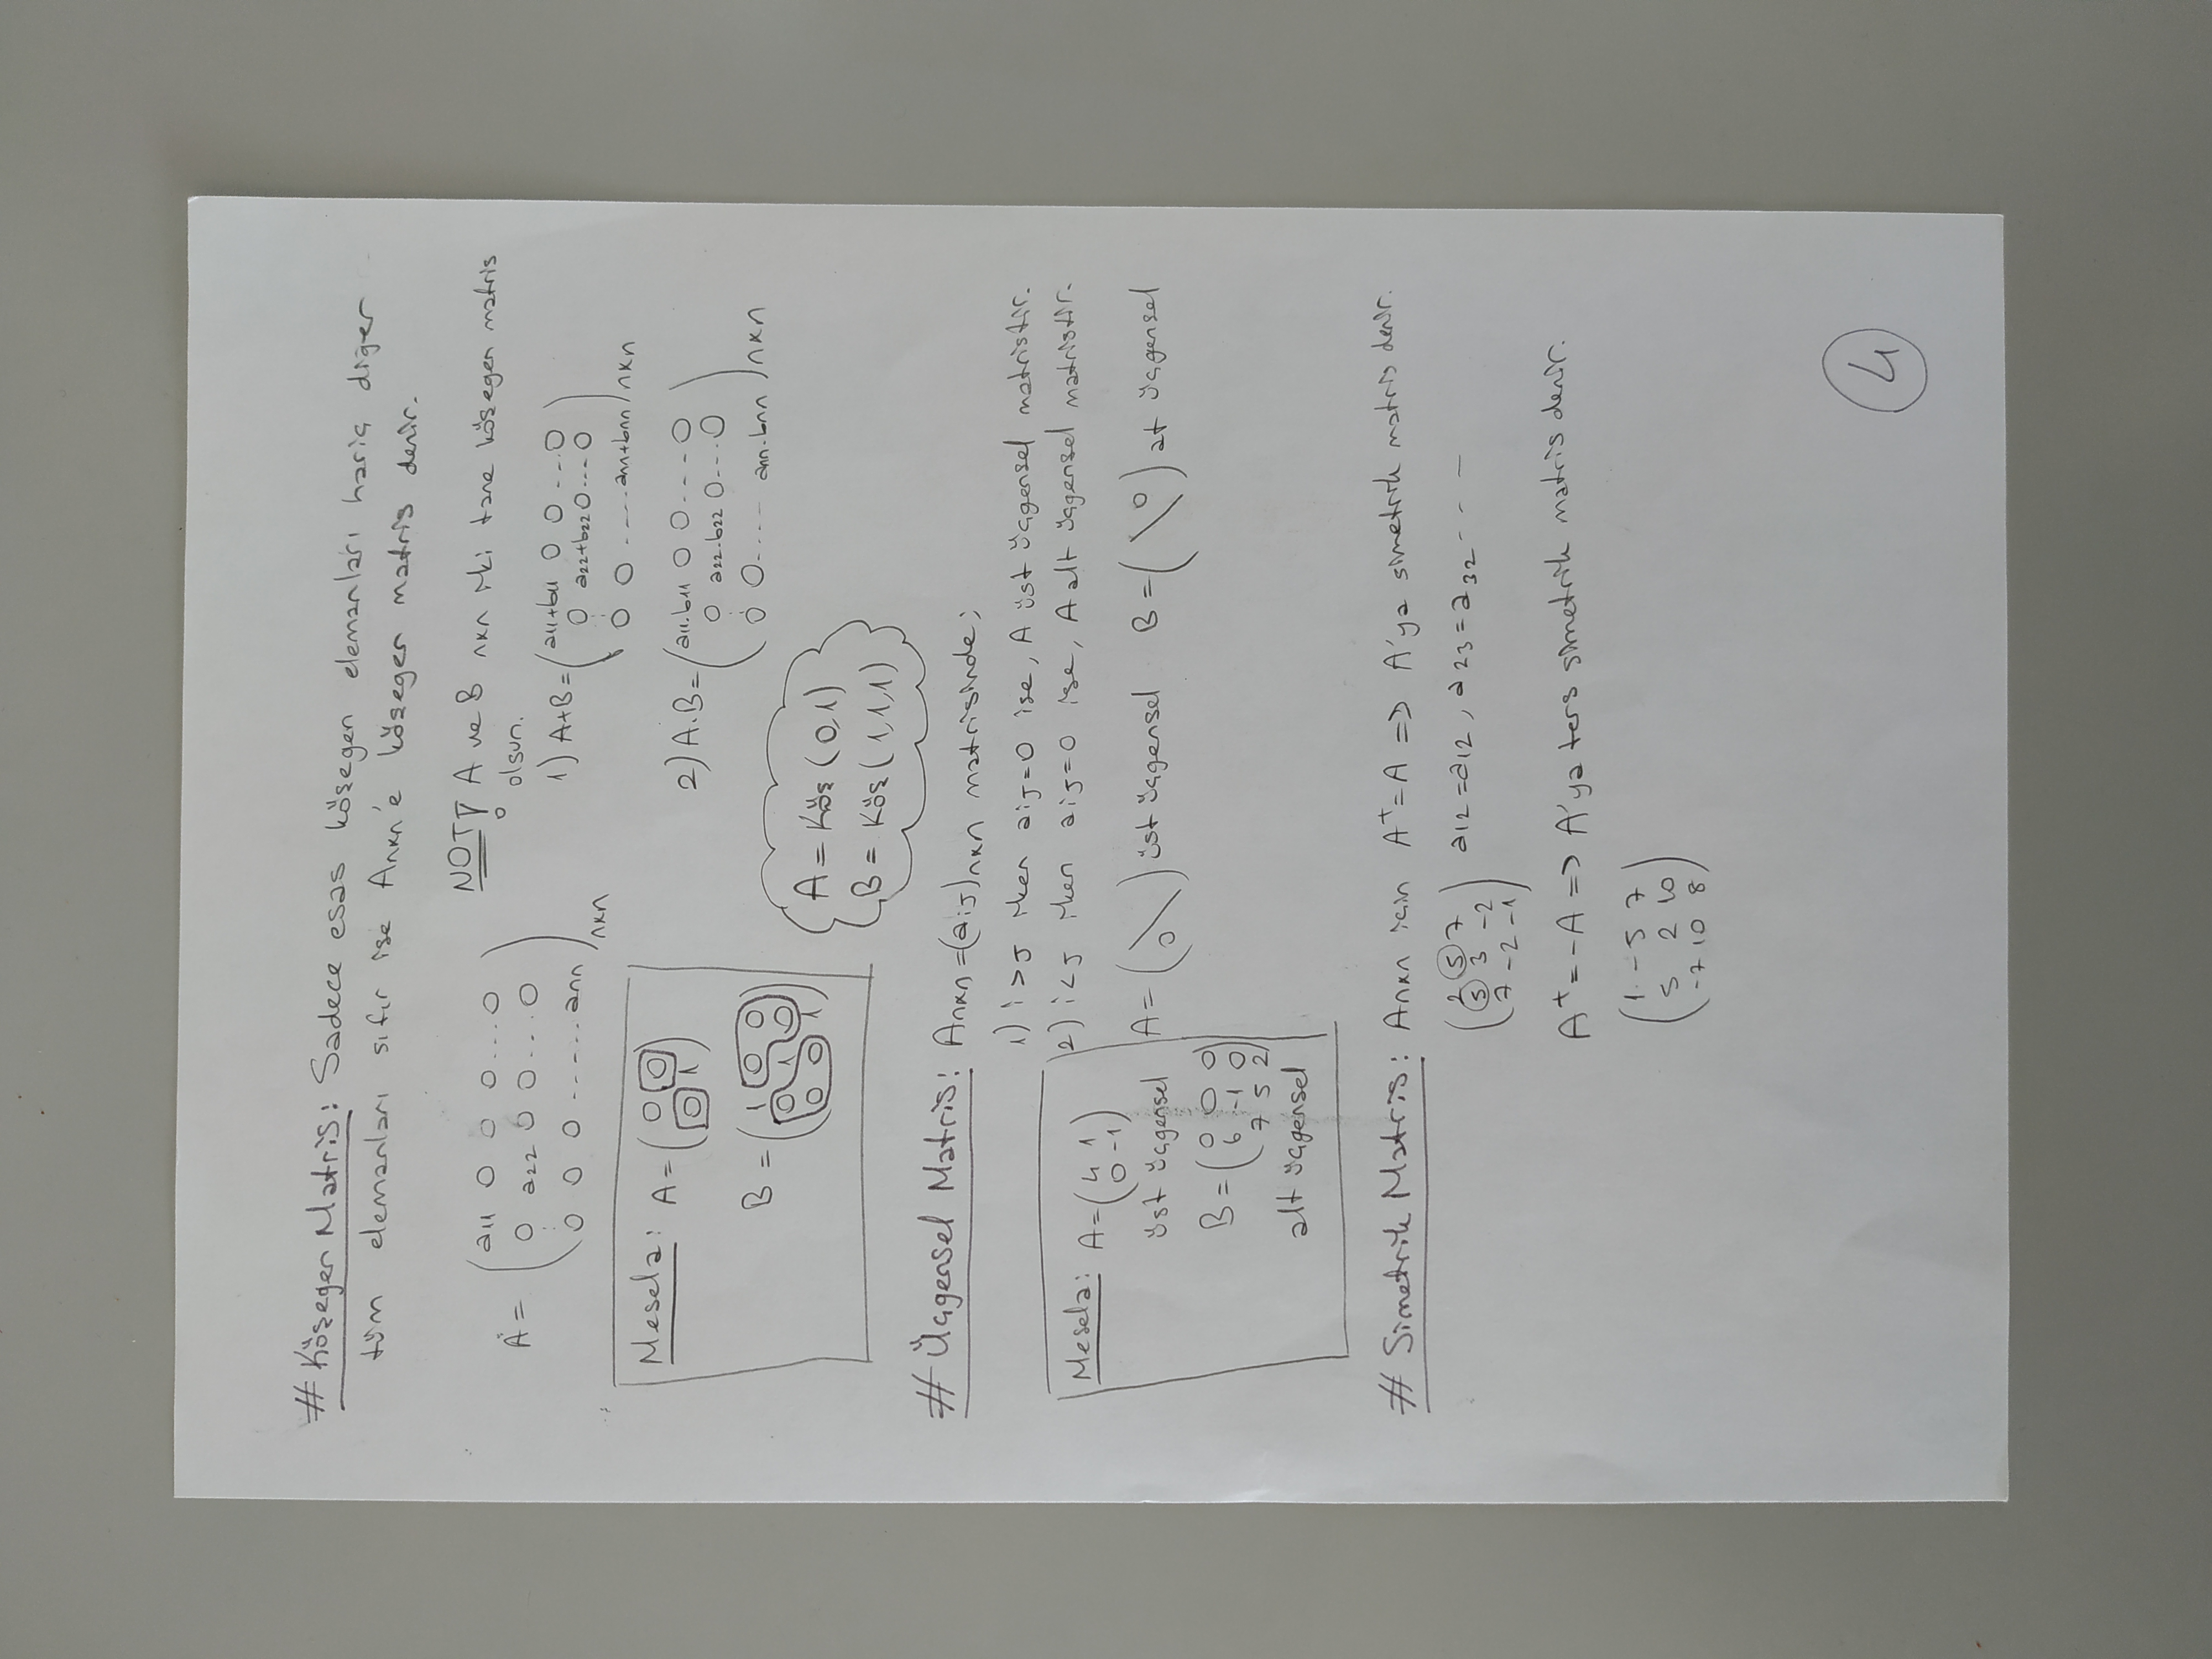 # Köşegen Matris: Sadece esas köşegen elemanları hariç diğer
tüm elemanları sıfır ise Anxn'e köşegen matris denir.
A = (a11 0 0 0...0
0 a22 0 0...0
⋮
0 0 0 ...... ann)nxn
NOT! A ve B nxn iki tane köşegen matris
olsun.
1) A+B = (a11+b11 0 0 ...0
0 a22+b22 0 ...0
⋮
0 0 ..... ann+bnn)nxn
2) A.B = (a11.b11 0 0 ....0
0 a22.b22 0 ...0
⋮
0 0 ..... ann.bnn)nxn
Mesela: A = (0 0
0 1)
B = (1 0 0
0 1 0
0 0 1)
A = Köş (0,1)
B = Köş (1,1,1)
# Üçgensel Matris: Anxn = (aij)nxn matrisinde;
1) i>j iken aij=0 ise, A üst üçgensel matristir.
2) i<j iken aij=0 ise, A alt üçgensel matristir.
A = (0 \) üst üçgensel B = (\ 0) at üçgensel
Mesela: A = (4 1
0 -1)
üst üçgensel
B = (0 0 0
6 -1 0
7 5 2)
alt üçgensel
# Simetrik Matris: Anxn için A^t = A => A'ya simetrik matris denir.
(2 5 7
5 3 -2
7 -2 -1) a12 = a12, a23 = a32 - - -
A^t = -A => A'ya ters simetrik matris denir.
(1 -5 7
5 2 10
-7 10 8)
4